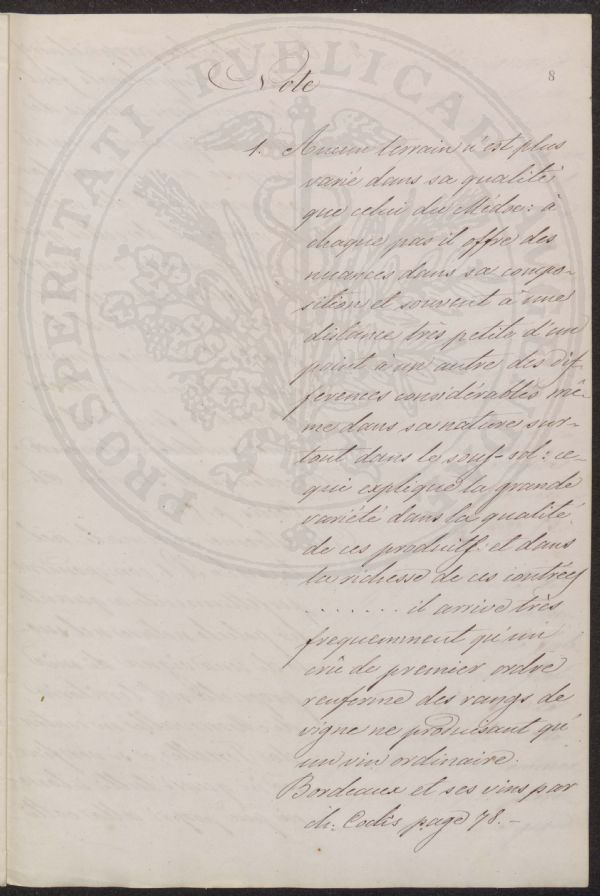 8
Note
1. Aucun terrain n'est plus
varié dans sa qualité
que celui du Médoc: à
chaque pas il offre des
nuances dans sa compo-
sition et souvent à une
distance très petite d'un
point à un autre des dif-
ferences considérables mê-
me dans sa nature sur-
tout dans le souf-sol: ce-
qui explique la grande
variété dans la qualité
de ces produitf: et dans
la richesse de ces contréef
. . . . . . . . il arrive très
frequemment qu'un
crû de premier ordre
renferme des rangs de
vigne ne produisant qu'
un vin ordinaire.
Bordeaux et ses vins par
ch: Codks page 78. -
PROSPERITATI PUBLICAE